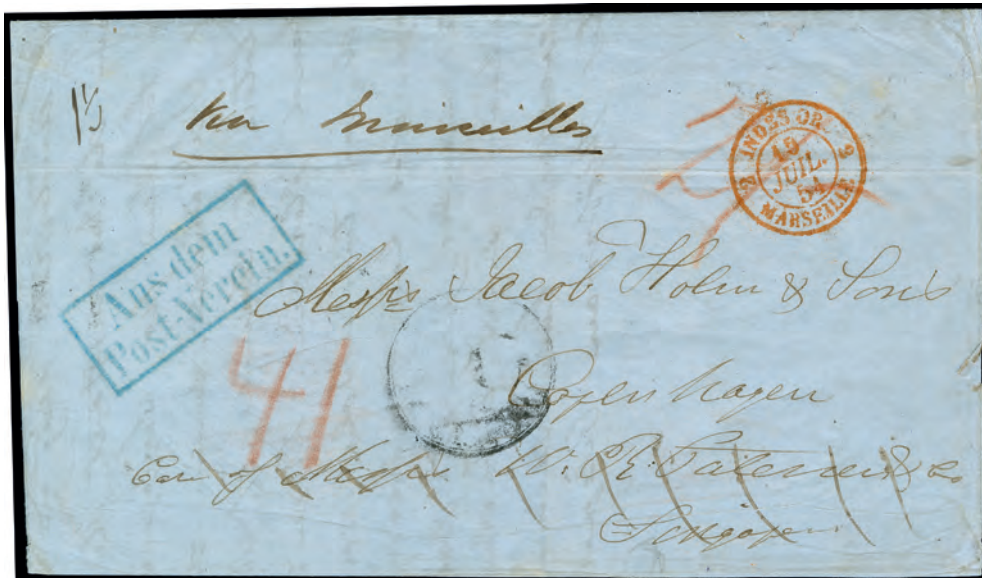 1/5
via Marseilles
2 INDES OR. 2
15
JUIL.
54
MARSEILLE
Aus dem
Post-Verein.
Messrs Jacob Holm & Sons
41
Copenhagen
Care of Messrs W. R. Paterson & Co
Singapore